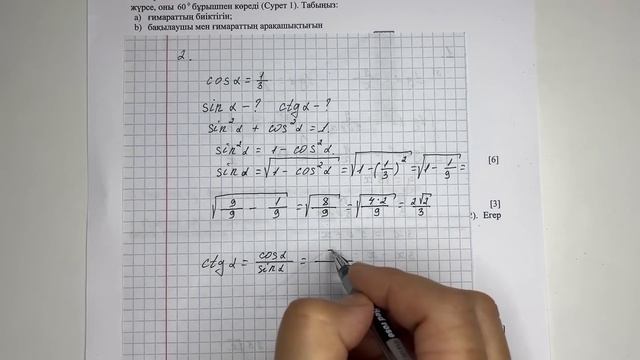 жүрсе, оны 60° бұрышпен көреді (Сурет 1). Табыңыз:
a) ғимараттың биіктігін;
b) бақылаушы мен ғимараттың арақашықтығын
2.
cosα = 1/3
sinα - ? ctgα - ?
sin²α + cos²α = 1
sin²α = 1 - cos²α
sinα = √(1 - cos²α) = √(1 - (1/3)²) = √(1 - 1/9) =
[6]
√(9/9 - 1/9) = √(8/9) = √(4·2/9) = 2√2/3
[3]
). Егер
ctgα = cosα/sinα =